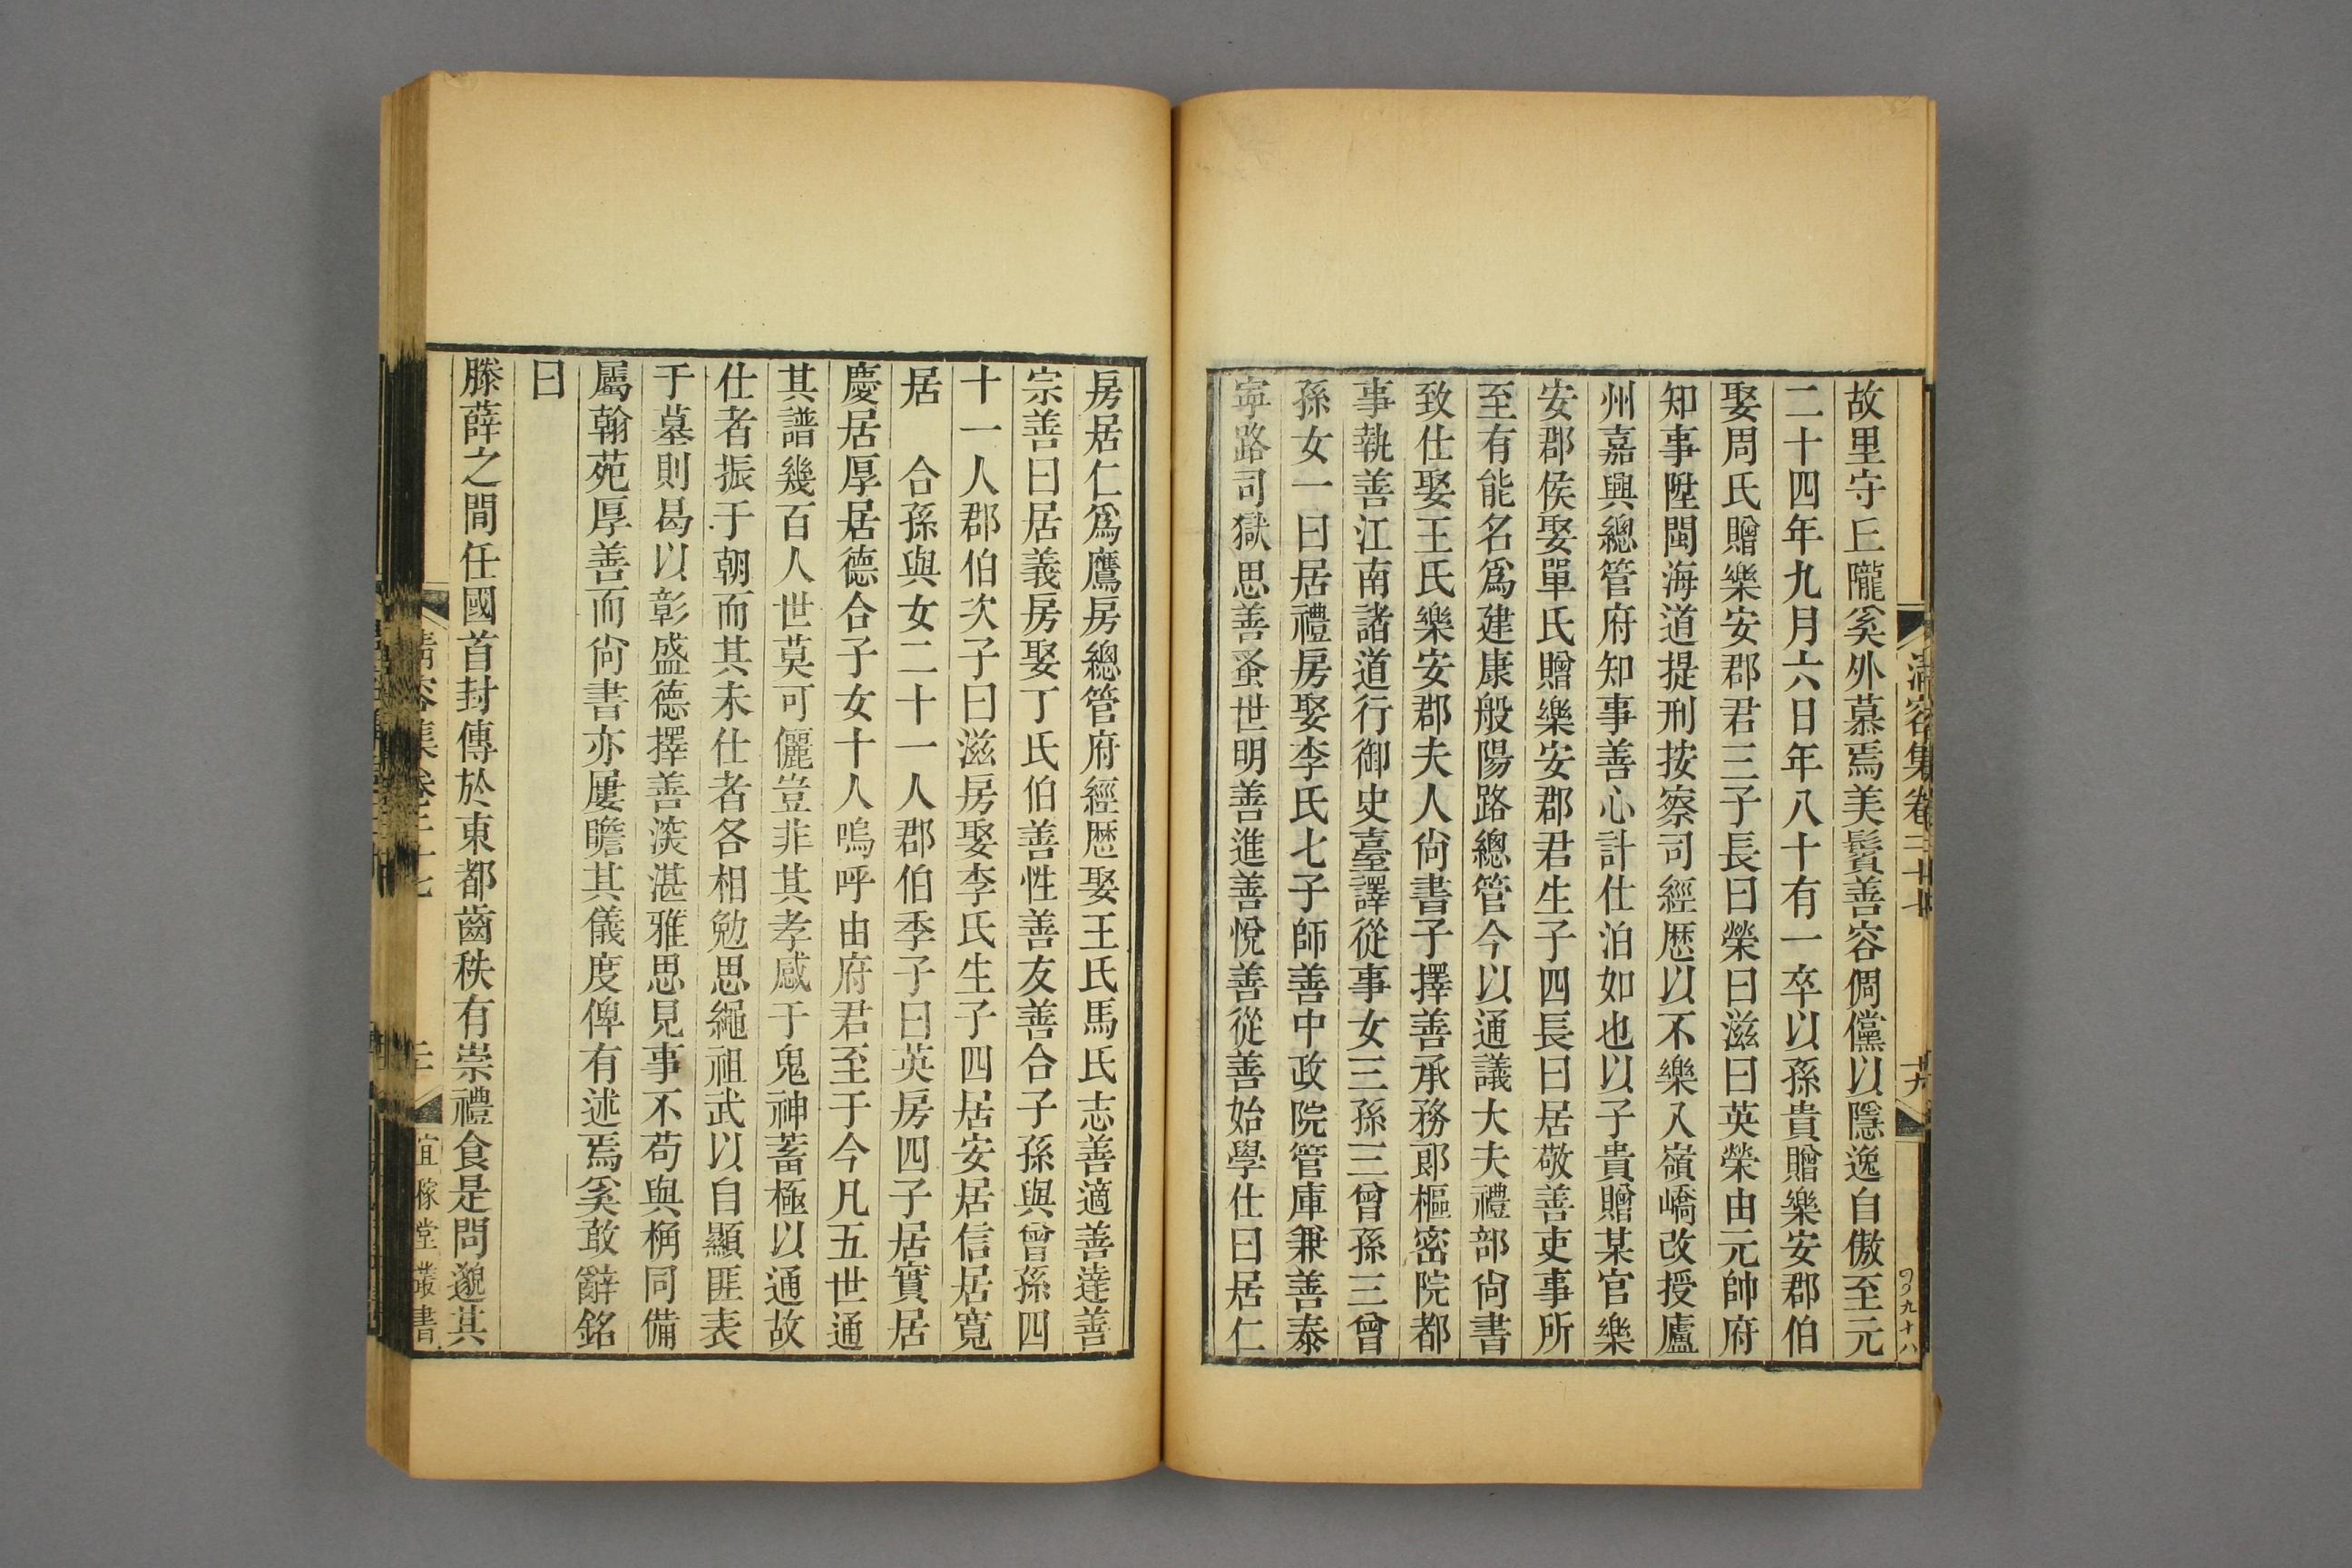 故里守丘隴奚外慕焉美鬢善容倜儻以隱逸自傲至元
二十四年九月六日年八十有一卒以孫貴贈樂安郡伯
娶周氏贈樂安郡君三子長曰榮曰滋曰英榮由元帥府
知事陞閩海道提刑按察司經歷以不樂入嶺嶠改授廬
州嘉興總管府知事善心計仕泊如也以子貴贈某官樂
安郡侯娶單氏贈樂安郡君生子四長曰居敬善吏事所
至有能名爲建康般陽路總管今以通議大夫禮部尙書
致仕娶王氏樂安郡夫人尙書子擇善承務郎樞密院都
事執善江南諸道行御史臺譯從事女三孫三曾孫三曾
孫女一曰居禮房娶李氏七子師善中政院管庫兼善泰
寧路司獄思善蚤世明善進善悅善從善始學仕曰居仁
房居仁爲鷹房總管府經歷娶王氏馬氏志善適善達善
宗善曰居義房娶丁氏伯善性善友善合子孫與曾孫四
十一人郡伯次子曰滋房娶李氏生子四居安居信居寬
居　合孫與女二十一人郡伯季子曰英房四子居實居
慶居厚居德合子女十人嗚呼由府君至于今凡五世通
其譜幾百人世莫可儷豈非其孝感于鬼神蓄極以通故
仕者振于朝而其未仕者各相勉思繩祖武以自顯匪表
于墓則曷以彰盛德擇善淡湛雅思見事不苟與桷同備
屬翰苑厚善而尙書亦屢瞻其儀度俾有述焉奚敢辭銘
曰
滕薛之間任國首封傳於東都齒秩有崇禮食是問邈其
清容集卷二十七
二十
宜稼堂叢書